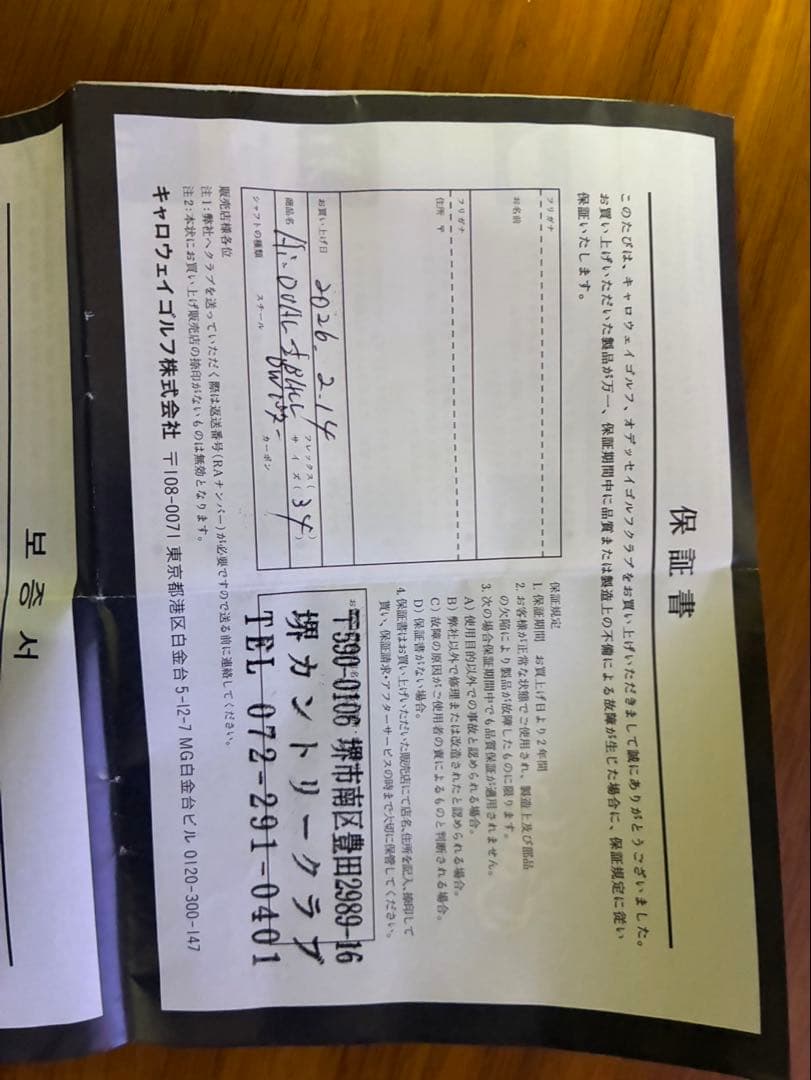 保証書
このたびは、キャロウェイゴルフ、オデッセイゴルフクラブをお買い上げいただきまして誠にありがとうございました。
お買い上げいただいた製品が万一、保証期間中に品質または製造上の不備による故障が生じた場合に、保証規定に従い
保証いたします。
フリガナ
お名前
フリガナ
住所 〒
お買い上げ日 2026.2.14
商品名 Ai-DUAL サイズ( 34 )
フレックス( )
シャフトの種類 スチール カーボン
保証規定
1. 保証期間 お買上げ日より2年間
2. お客様が正常な状態でご使用され、製造上及び部品
の欠陥により製品が故障したものに限ります。
3. 次の場合保証期間中でも品質保証が適用されません。
A) 使用目的以外での事故と認められる場合。
B) 弊社以外で修理または改造されたと認められる場合。
C) 故障の原因がご使用者の責によるものと判断される場合。
D) 保証書がない場合。
4. 保証書はお買い上げいただいた販売店にて店名、住所を記入、捺印して
買い、保証請求・アフターサービスの時まで大切に保管してください。
〒590-0106 堺市南区豊田2989-16
堺カントリークラブ
TEL 072-291-0401
販売店様各位
注1:弊社へクラブを送っていただく際は返送番号(RAナンバー)が必要ですので送る前に連絡してください。
注2:本状にお買い上げ販売店の捺印がないものは無効となります。
キャロウェイゴルフ株式会社 〒108-0071 東京都港区白金台5-12-7 MG白金台ビル 0120-300-147
보증서